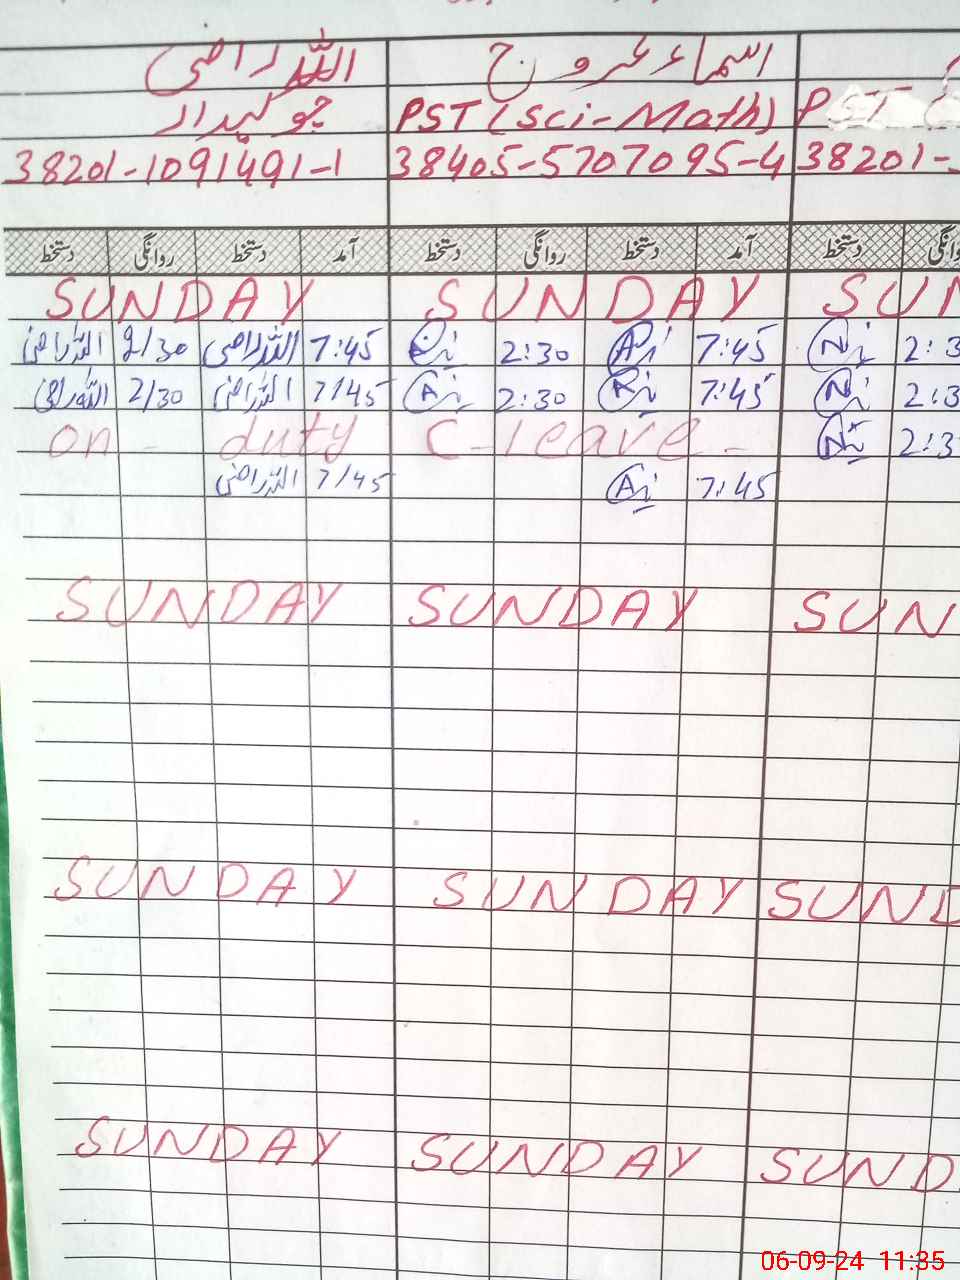 اسماء عروج اللہ راضی
PST چوکیدار PST (Sci-Math)
38201-1091491-1 38405-5707095-4 38201-
دستخط روانگی دستخط آمد دستخط روانگی دستخط آمد دستخط روانگی
SUNDAY SUNDAY SUN
اللہ راضی 2/30 اللہ راضی 7:45 2:30 7:45 2:3
اللہ راضی 2/30 اللہ راضی 7/45 2:30 7:45 2:3
on - duty C-leave - 2:3
اللہ راضی 7/45 7:45
SUNDAY SUNDAY SUN
SUNDAY SUNDAY SUND
SUNDAY SUNDAY SUND
06-09-24 11:35